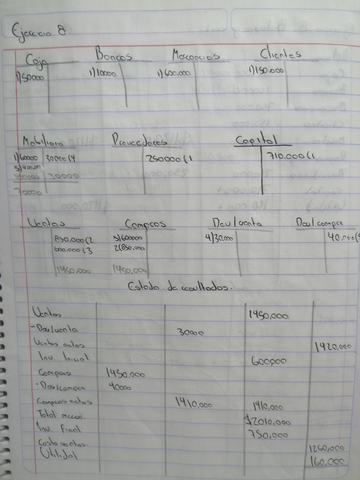 Ejercicio 8
Caja Bancos Mercancias Clientes
1)50000 1)10000 1)600.000 1)150.000
Mobiliario Proveedores Capital
1)60000 30000(4 250000(1 710.000(1
30000
70000
Ventas Compras Dev/venta Dev/compra
850.000(2 3)600000 4)30000
2)850.000
1450.000 1450.000
Estado de resultados.
Ventas 1450,000
-Dev/venta 30000
Ventas netas 1420,000
Inv. Inicial 600000
Compras 1450.000
-Dev/compra 40000
Compras netas 1410,000 1410,000
Total $2010,000
Inv. Final 750,000
Costo ventas 1260,000
Utilidad 160,000